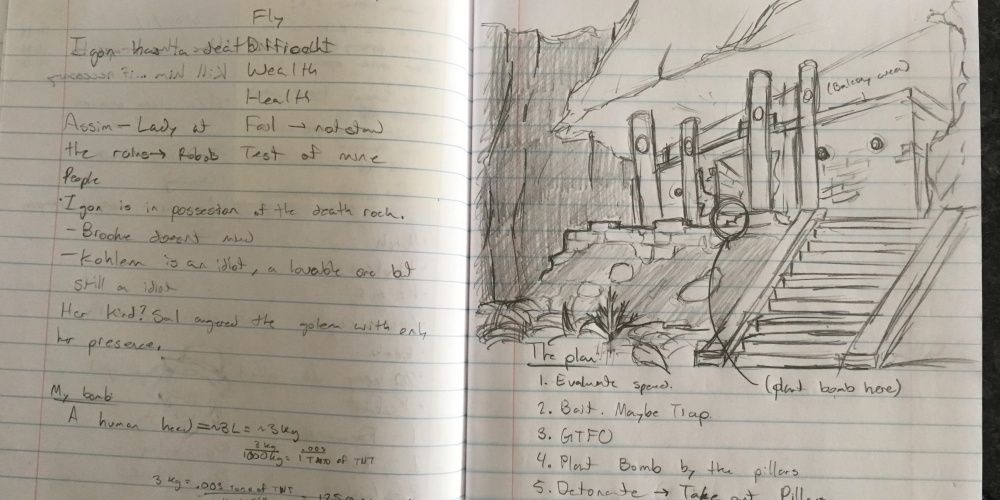 Fly
Igon has a deat Difficult
Kill him
Wealth
Health
Assim - Lady at Fool → not stow
the rains → Robob Test of mine
People
Igon is in possesion of the death rock.
- Brooke doesn't mind
- Kohlem is an idiot, a lovable one but
still an idiot
Her kind? Sal angered the golem with only
her presence.
My bomb
A human head = ~3L = ~3kg
3 kg / 1000 kg = .003 / 1 Tons of TNT
3 kg = .003 Tons of TNT
(Balcony area)
(plant bomb here)
The plan:
1. Evaluate speed.
2. Bait. Maybe Trap.
3. GTFO
4. Plant Bomb by the pillars
5. Detonate → Take out Pillars